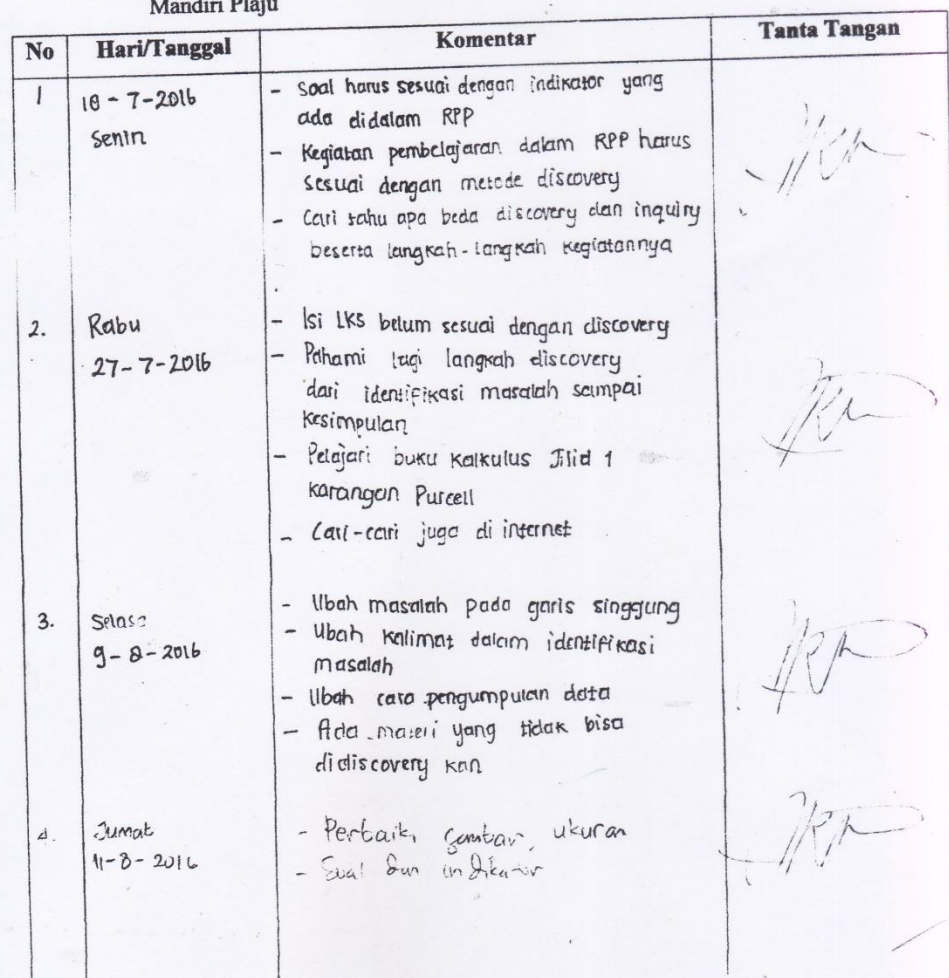 Mandiri Plaju
No Hari/Tanggal Komentar Tanta Tangan
1 18 - 7-2016 - Soal harus sesuai dengan indikator yang
ada didalam RPP
Senin
- Kegiatan pembelajaran dalam RPP harus
sesuai dengan metode discovery
- Cari tahu apa beda discovery dan inquiry
beserta langkah-langkah kegiatannya
2. Rabu - Isi LKS belum sesuai dengan discovery
27-7-2016 - Pahami lagi langkah discovery
dari identifikasi masalah sampai
kesimpulan
- Pelajari buku Kalkulus Jilid 1
karangan Purcell
- Cari-cari juga di internet
3. Selasa - Ubah masalah pada garis singgung
9-8-2016 - Ubah kalimat dalam identifikasi
masalah
- Ubah cara pengumpulan data
- Ada materi yang tidak bisa
didiscovery kan
4. Jumat - Perbaiki gambar, ukuran
11-8-2016 - Soal dan indikator